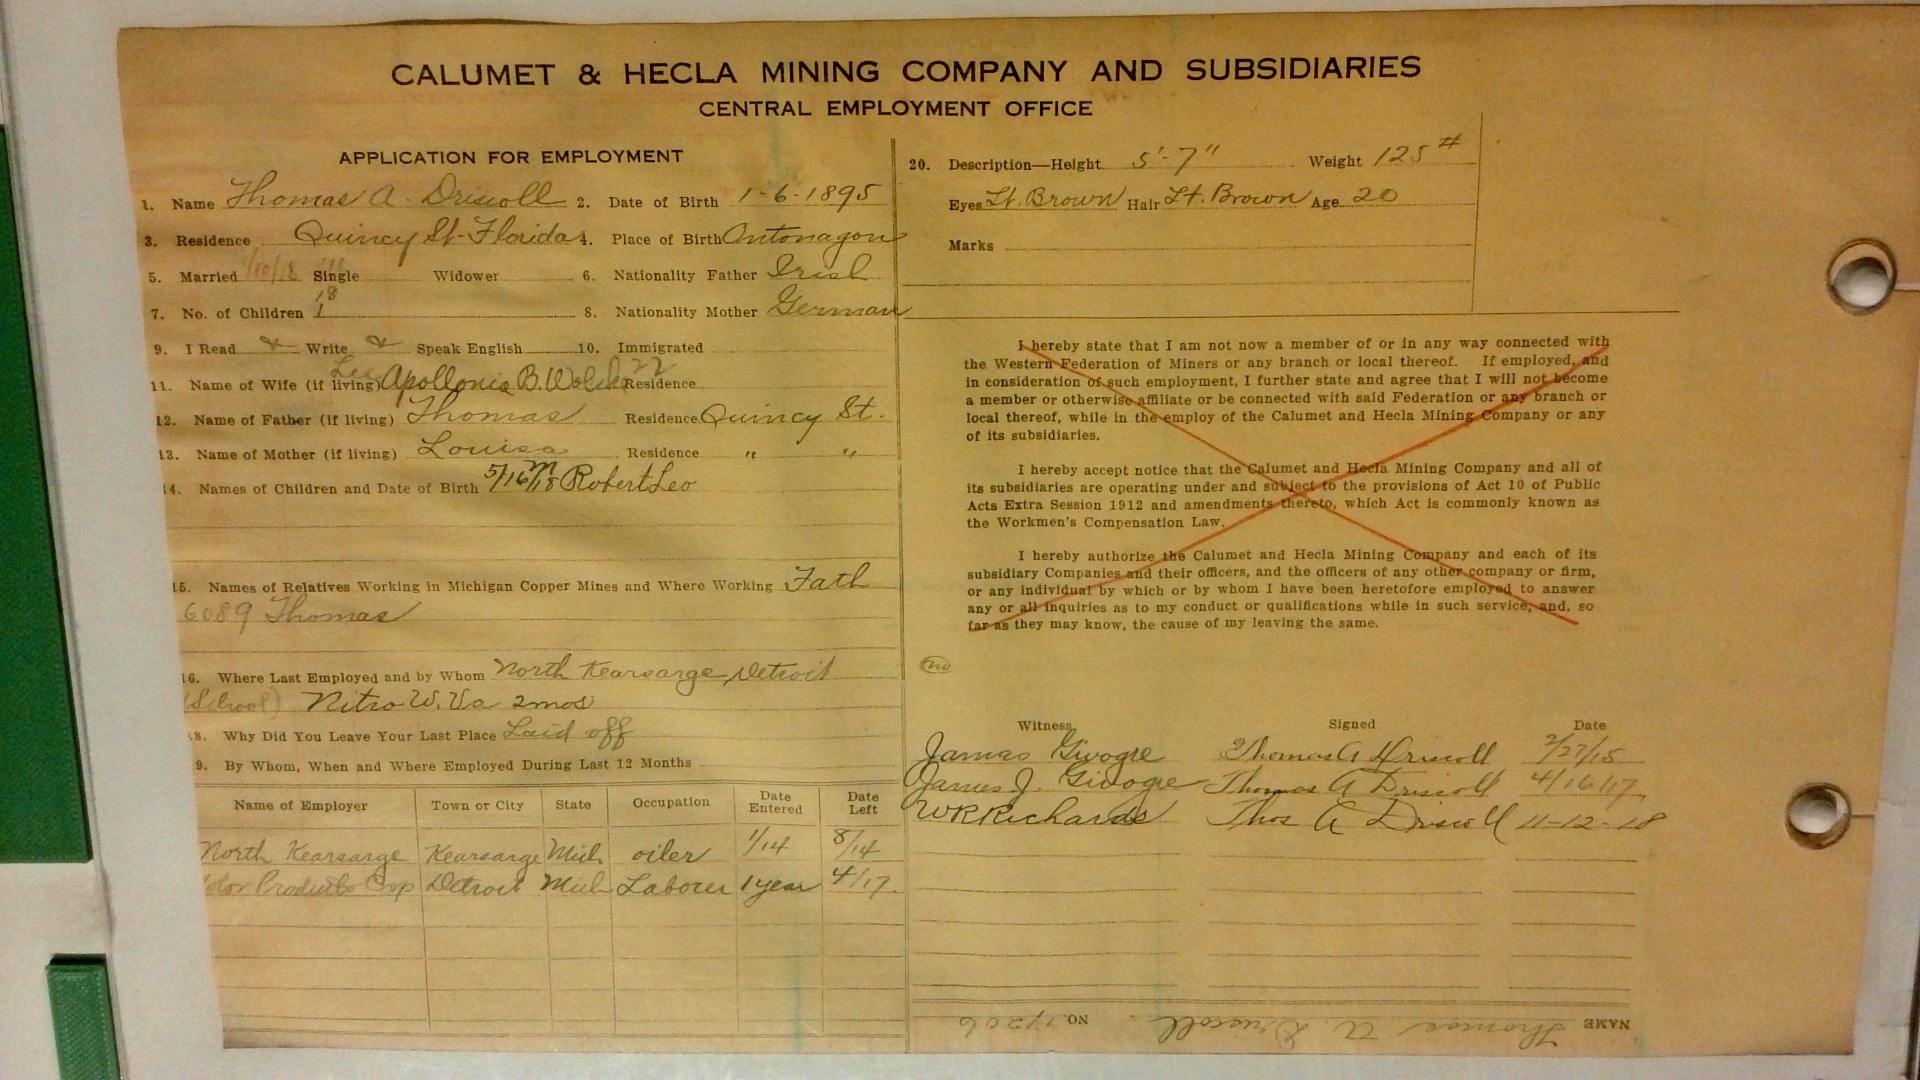 CALUMET & HECLA MINING COMPANY AND SUBSIDIARIES
CENTRAL EMPLOYMENT OFFICE
APPLICATION FOR EMPLOYMENT
1. Name Thomas A. Driscoll 2. Date of Birth 1-6-1895
3. Residence Quincy St-Florida 4. Place of Birth Ontonagon
5. Married 1/10/18 Single Widower 6. Nationality Father Irish
18
7. No. of Children 1 8. Nationality Mother German
9. I Read & Write & Speak English 10. Immigrated
11. Name of Wife (if living) Apollonia B. Residence
12. Name of Father (if living) Thomas Residence Quincy St.
13. Name of Mother (if living) Louisa Residence " "
14. Names of Children and Date of Birth 5/16/18 M Robert Leo
15. Names of Relatives Working in Michigan Copper Mines and Where Working Fath
6089 Thomas
16. Where Last Employed and by Whom North Kearsarge Detroit
(School) Nitro W. Va 2mos
18. Why Did You Leave Your Last Place Laid off
19. By Whom, When and Where Employed During Last 12 Months
Name of Employer Town or City State Occupation Date Entered Date Left
North Kearsarge Kearsarge Mich oiler 1/14 8/14
Motor Products Corp Detroit Mich Laborer 1 year 4/17
20. Description—Height 5'-7" Weight 125 #
Eyes Lt. Brown Hair Lt. Brown Age 20
Marks
I hereby state that I am not now a member of or in any way connected with
the Western Federation of Miners or any branch or local thereof. If employed, and
in consideration of such employment, I further state and agree that I will not become
a member or otherwise affiliate or be connected with said Federation or any branch or
local thereof, while in the employ of the Calumet and Hecla Mining Company or any
of its subsidiaries.
I hereby accept notice that the Calumet and Hecla Mining Company and all of
its subsidiaries are operating under and subject to the provisions of Act 10 of Public
Acts Extra Session 1912 and amendments thereto, which Act is commonly known as
the Workmen's Compensation Law.
I hereby authorize the Calumet and Hecla Mining Company and each of its
subsidiary Companies and their officers, and the officers of any other company or firm,
or any individual by which or by whom I have been heretofore employed to answer
any or all inquiries as to my conduct or qualifications while in such service, and, so
far as they may know, the cause of my leaving the same.
no
Witness Signed Date
James Givogre Thomas A Driscoll 2/27/15
James J. Givogre Thomas A Driscoll 4/16/17
WR Richards Thos A Driscoll 11-12-18
NAME Thomas A Driscoll NO.